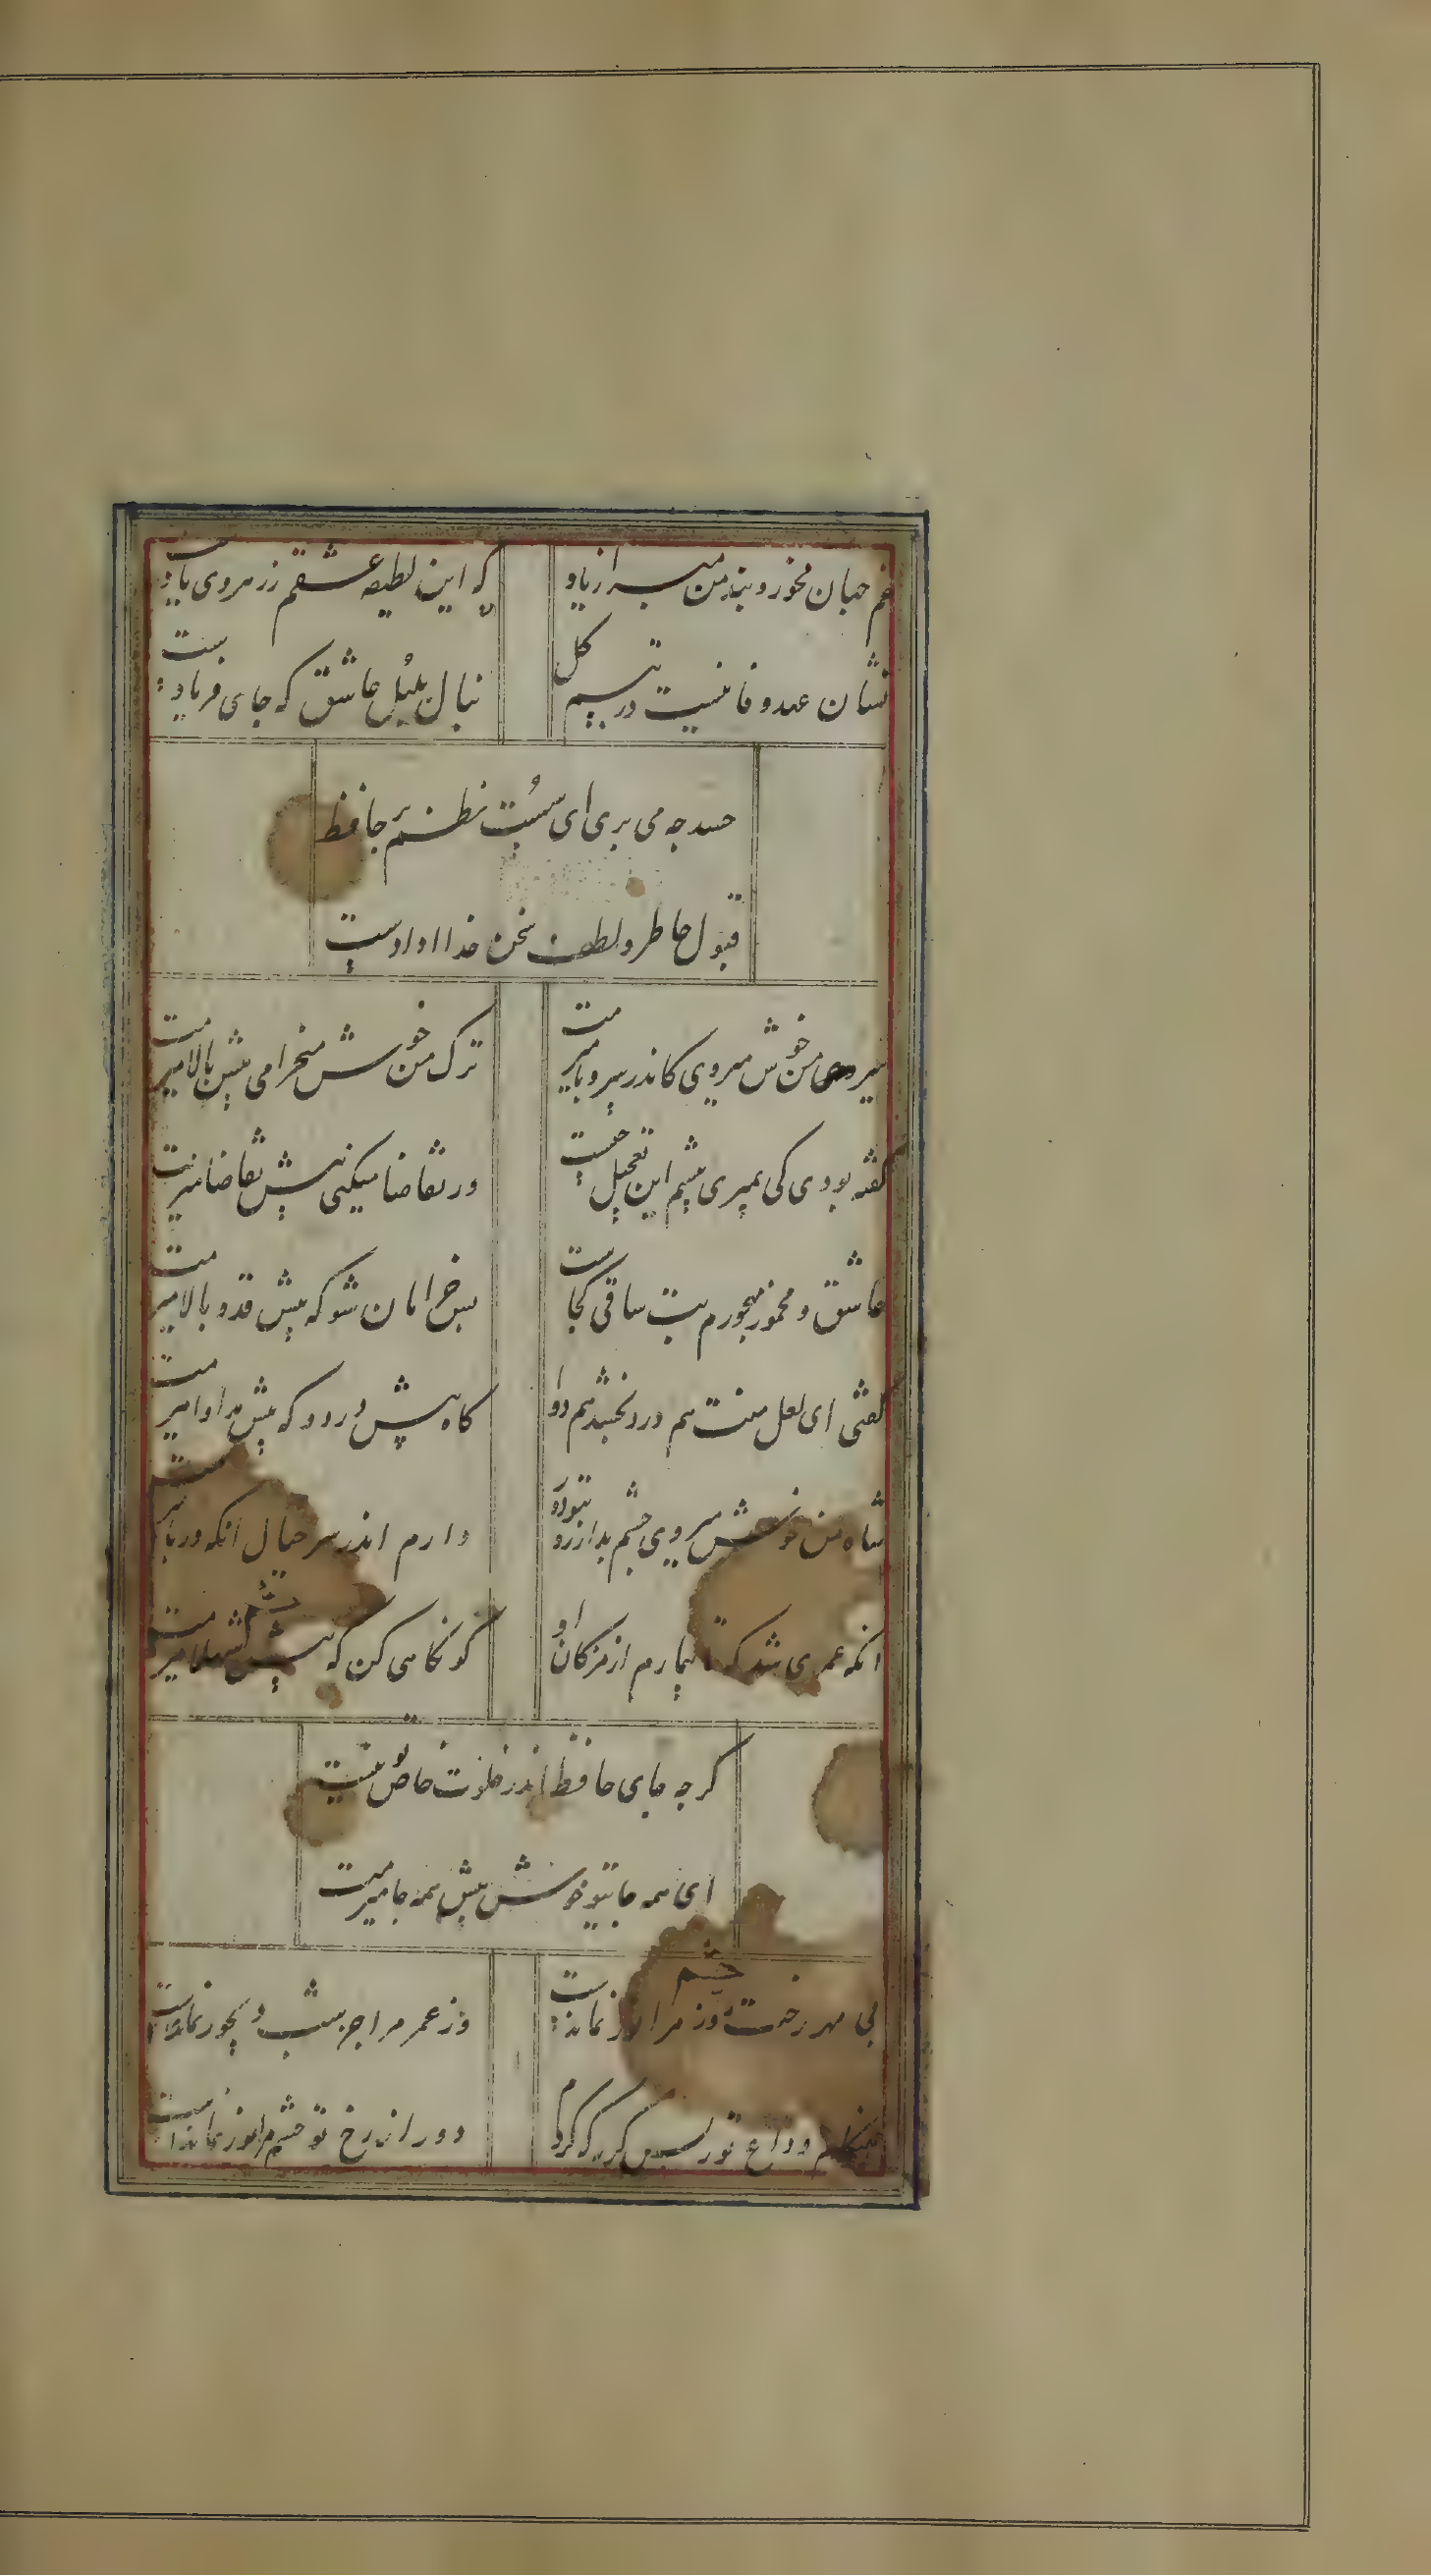 غم جهان مخور و پند من مبر از یاد
که این لطیفه عشقم ز رهروی یادست
نشان عهد و فا نیست در تبسم گل
بنال بلبل عاشق که جای فریادست
حسد چه می بری ای سست نظم بر حافظ
قبول خاطر و لطف سخن خدا دادست
میر من خوش میروی کاندر سر و پا میرمت
ترک من خوش میخرامی پیش بالا میرمت
گفته بودی کی بمیری پیشم این تعجیل چیست
ور تقاضا میکنی پیش تقاضا میرمت
عاشق و مخمور و مهجورم بت ساقی کجاست
خرامان شو که پیش قد و بالا میرمت
گفتی ای لعل منت هم درد بخشد هم دوا
گاه پیش درد و گه پیش مداوا میرمت
شاه من خوش میروی چشم بد از روی تو دور
دارم اندر سر خیال آنکه در پا میرمت
آنکه عمری شد که تا بیمارم از مژگان او
گو نگاهی کن که پیش چشم شهلا میرمت
گر چه جای حافظ اندر خلوت خاص تو نیست
ای همه جا تو خوش پیش همه جا میرمت
بی مهر رخت روز مرا نور نماندست
وز عمر مرا جز شب دیجور نماندست
هنگام وداع تو ز بس گریه که کردم
دور از رخ تو چشم مرا نور نماندست